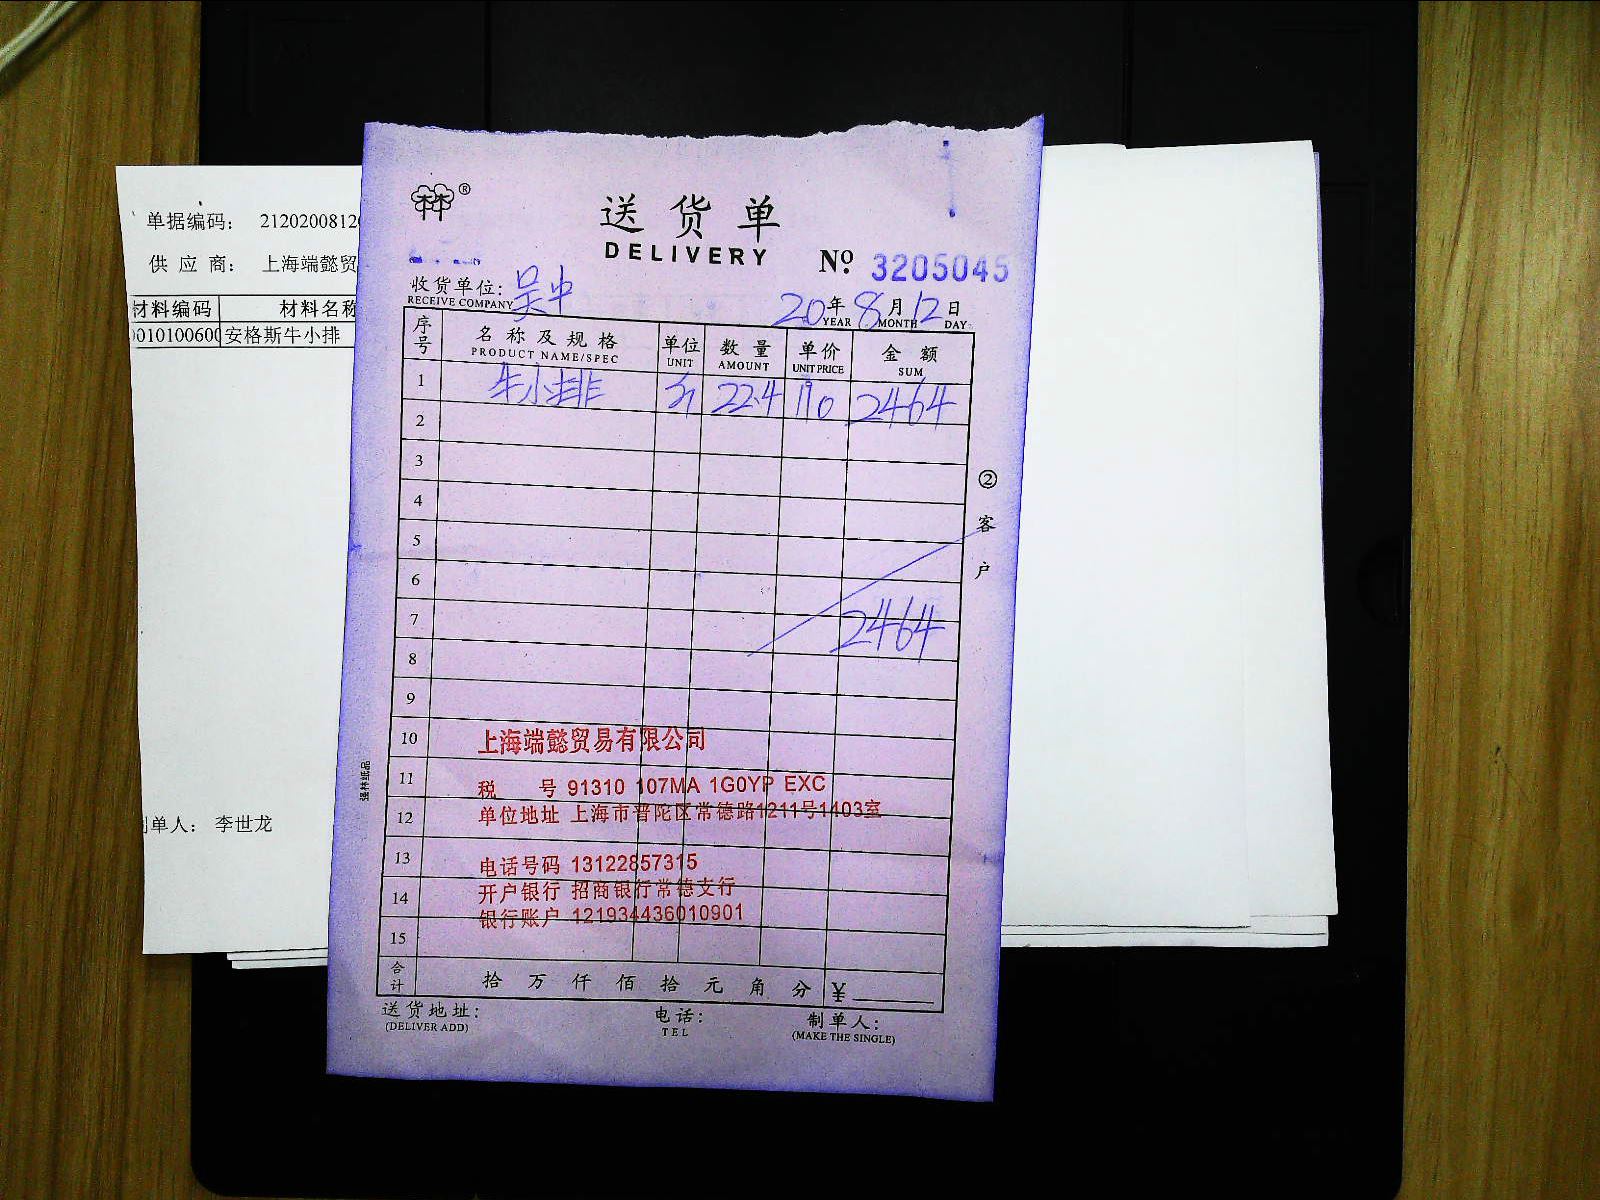 单据编码: 2120200812
供 应 商: 上海端懿贸
材料编码 材料名称
010100600 安格斯牛小排
制单人: 李世龙
林 ®
送货单
DELIVERY
№ 3205045
收货单位: 吴中
RECEIVE COMPANY
20年 8月 12日
YEAR MONTH DAY
序号 名称及规格 单位 数量 单价 金额
PRODUCT NAME/SPEC UNIT AMOUNT UNIT PRICE SUM
1 牛小排 22.4 110 2464
2
3
4
5
6
7 2464
8
9
10
11
12
13
14
15
② 客户
强林纸品
上海端懿贸易有限公司
税 号 91310 107MA 1G0YP EXC
单位地址 上海市普陀区常德路1211号1403室
电话号码 13122857315
开户银行 招商银行常德支行
银行账户 121934436010901
合计 拾 万 仟 佰 拾 元 角 分 ¥
送货地址: 电话: 制单人:
(DELIVER ADD) TEL (MAKE THE SINGLE)